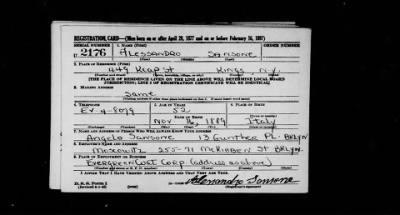 REGISTRATION CARD—(Men born on or after April 28, 1877 and on or before February 16, 1897)
SERIAL NUMBER
1. NAME (Print)
U 2176
ALESSANDRO SANSONE
2. PLACE OF RESIDENCE (Print)
449 Keap St Kings, N.Y.
[THE PLACE OF RESIDENCE GIVEN ON THE LINE ABOVE WILL DETERMINE LOCAL BOARD
JURISDICTION; LINE 2 OF REGISTRATION CERTIFICATE WILL BE IDENTICAL]
3. MAILING ADDRESS
Same
4. TELEPHONE
5. AGE IN YEARS
6. PLACE OF BIRTH
Ev 4-8079
52
Nov 16, 1889
Italy
7. NAME AND ADDRESS OF PERSON WHO WILL ALWAYS KNOW YOUR ADDRESS
Angelo Sansone 13 Gunther Pl. BKlyn
8. EMPLOYER'S NAME AND ADDRESS
Moscowitz 255-71 McKibben St BKlyn
9. PLACE OF EMPLOYMENT OR BUSINESS
Evergreen Coat Corp (address above)
I AFFIRM THAT I HAVE VERIFIED ABOVE ANSWERS AND THAT THEY ARE TRUE.
D. S. S. Form 1
Alessandro Sansone